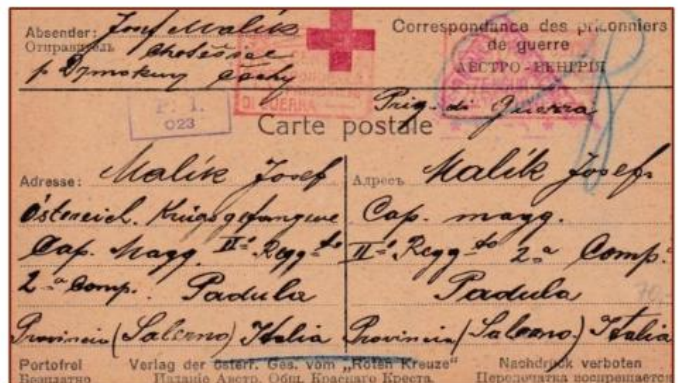 Absender: Josef Malík
Отправитель Chotěšice
p Dymokury Čechy
Correspondance des prisonniers
de guerre
АВСТРО-ВЕНГРІЯ
P. I.
023
DI GUERRA
Prig. di Guerra
Carte postale
Adresse: Malík Josef
Österreich. Kriegsgefangene
Cap. Magg. IIº Regg.to
2ª Comp. Padula
Provincia (Salerno) Italia
Адресъ Malík Josef
Cap. magg.
IIº Regg.to 2ª Comp.
Padula
Provincia (Salerno) Italia
Portofrei Verlag der österr. Ges. vom „Roten Kreuze" Nachdruck verboten
Безплатно Изданіе Австр. Общ. Краснаго Креста. Перепечатка воспрещается